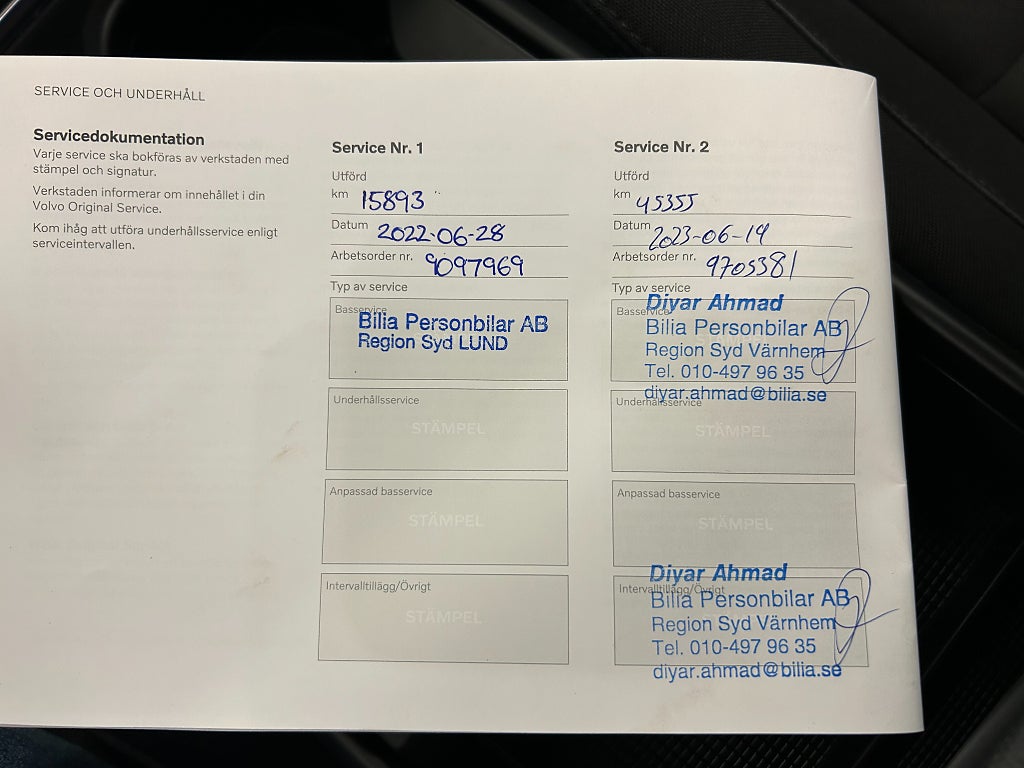 SERVICE OCH UNDERHÅLL
Servicedokumentation
Varje service ska bokföras av verkstaden med
stämpel och signatur.
Verkstaden informerar om innehållet i din
Volvo Original Service.
Kom ihåg att utföra underhållsservice enligt
serviceintervallen.
Service Nr. 1
Utförd
km 15893
Datum 2022-06-28
Arbetsorder nr. 9097969
Typ av service
Basservice
Bilia Personbilar AB
Region Syd LUND
Underhållsservice
STÄMPEL
Anpassad basservice
STÄMPEL
Intervalltillägg/Övrigt
STÄMPEL
Service Nr. 2
Utförd
km 45355
Datum 2023-06-14
Arbetsorder nr. 9705381
Typ av service
Basservice
Diyar Ahmad
Bilia Personbilar AB
Region Syd Värnhem
Tel. 010-497 96 35
diyar.ahmad@bilia.se
Underhållsservice
STÄMPEL
Anpassad basservice
STÄMPEL
Intervalltillägg/Övrigt
Diyar Ahmad
Bilia Personbilar AB
Region Syd Värnhem
Tel. 010-497 96 35
diyar.ahmad@bilia.se